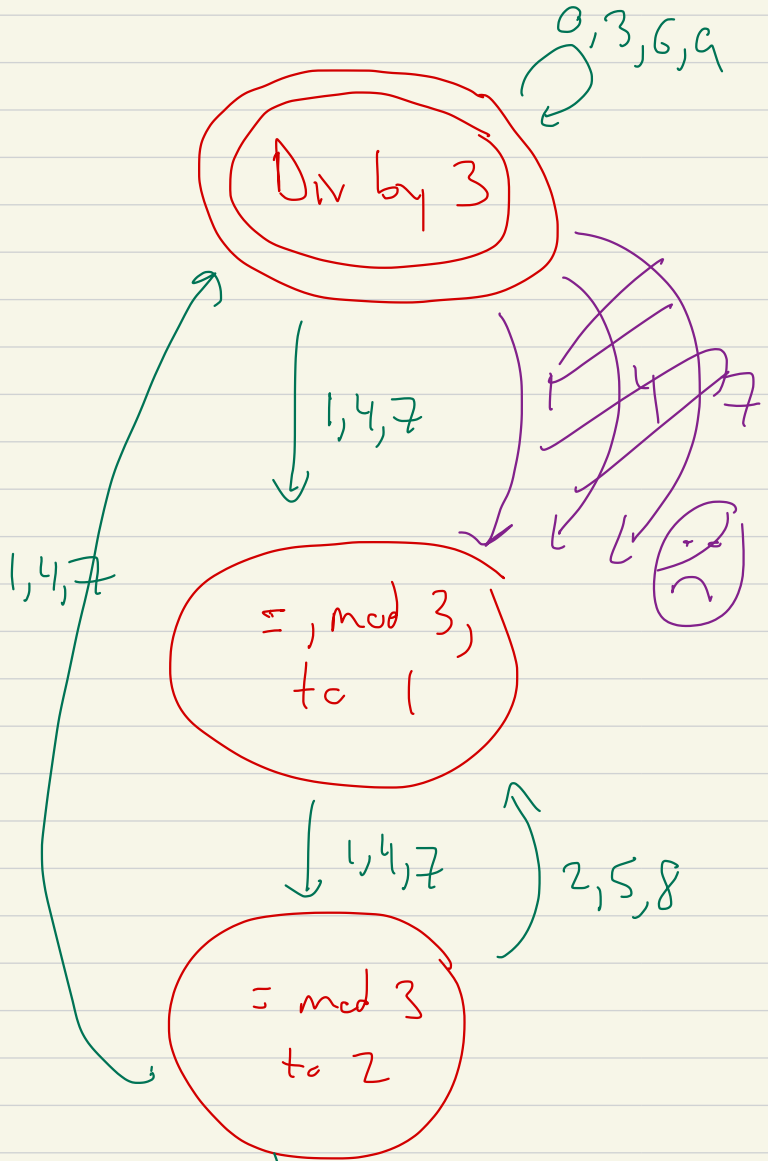 0,3,6,9
Div by 3
1,4,7
1 4 7
1,4,7
= , mod 3,
to 1
1,4,7
2,5,8
= mod 3
to 2